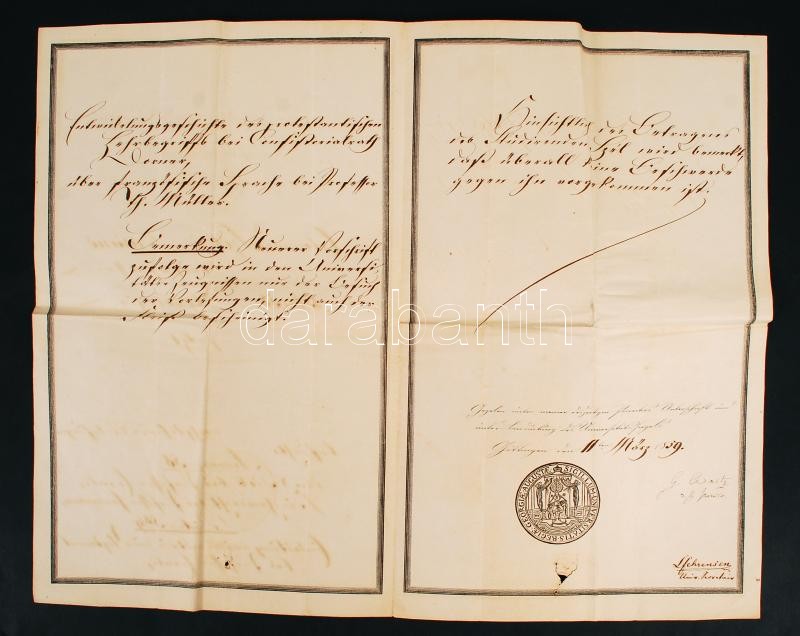 Entwickelungsgeschichte des protestantischen
Lehrbegriffs bei Consistorialrath
Dorner,
über französische Sprache bei Professor
Th. Müller.
Bemerkung. Neuerer Vorschrift
zufolge wird in den Universi-
täts-Zeugnissen nur der Besuch
der Vorlesungen, nicht auch der
Fleiß bescheinigt.
Hinsichtlich des Betragens
des Studirenden wird bemerkt,
daß überall keine Beschwerde
gegen ihn vorgekommen ist.
Gegeben unter meiner Unterschrift und
unter des Universitäts-Siegels
Göttingen den 11 ten März 1859.
SIGILLUM UNIVERSITATIS REGIAE GEORGIAE AUGUSTAE
G. Waitz
Univ. Secretair
darabanth